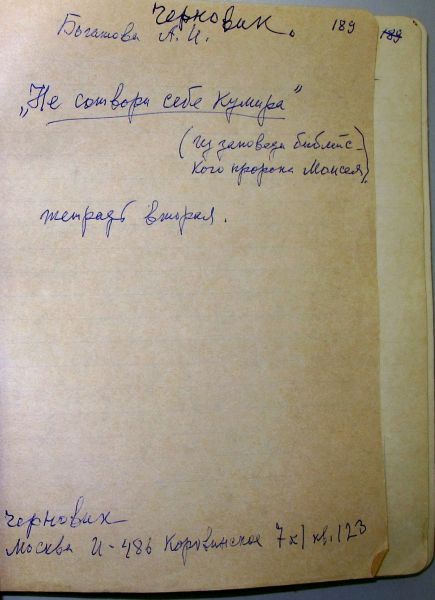 черновик.
Богатова А. И. 189 189
„Не сотвори себе Кумира"
(из заповеди библейс-
кого пророка Моисея).
тетрадь вторая.
черновик
Москва И-486 Коровинское 7 к1 кв. 123